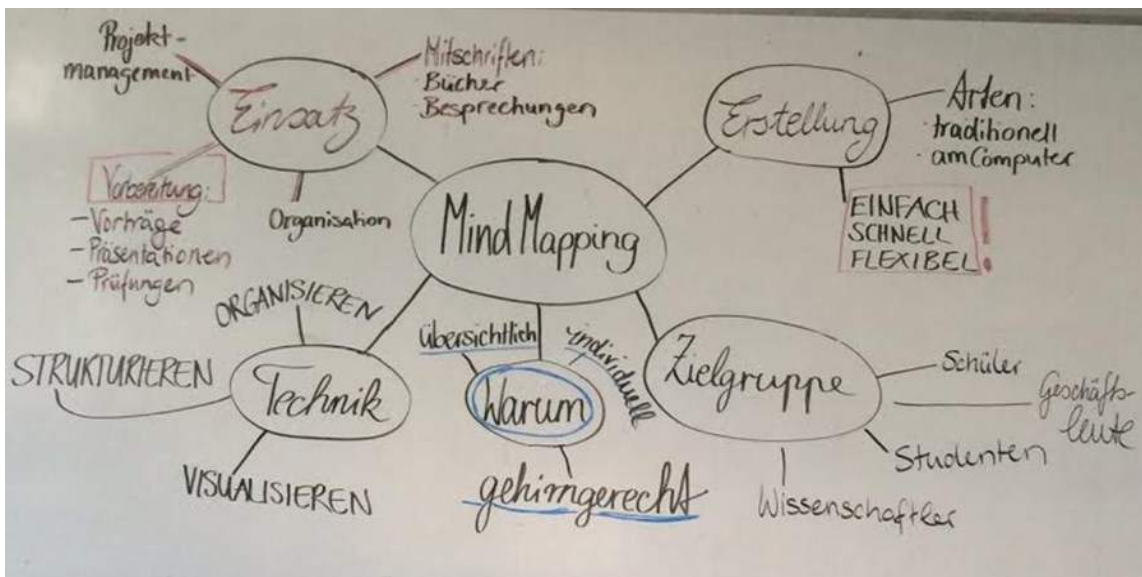 Projekt-
management
Einsatz
Mitschriften:
· Bücher
· Besprechungen
Vorbereitung:
- Vorträge
- Präsentationen
- Prüfungen
Organisation
Mind Mapping
Erstellung
Arten:
· traditionell
· am Computer
EINFACH
SCHNELL
FLEXIBEL
!
ORGANISIEREN
STRUKTURIEREN
Technik
VISUALISIEREN
übersichtlich
individuell
Warum
gehirngerecht
Zielgruppe
Schüler
Geschäfts-
leute
Studenten
Wissenschaftler